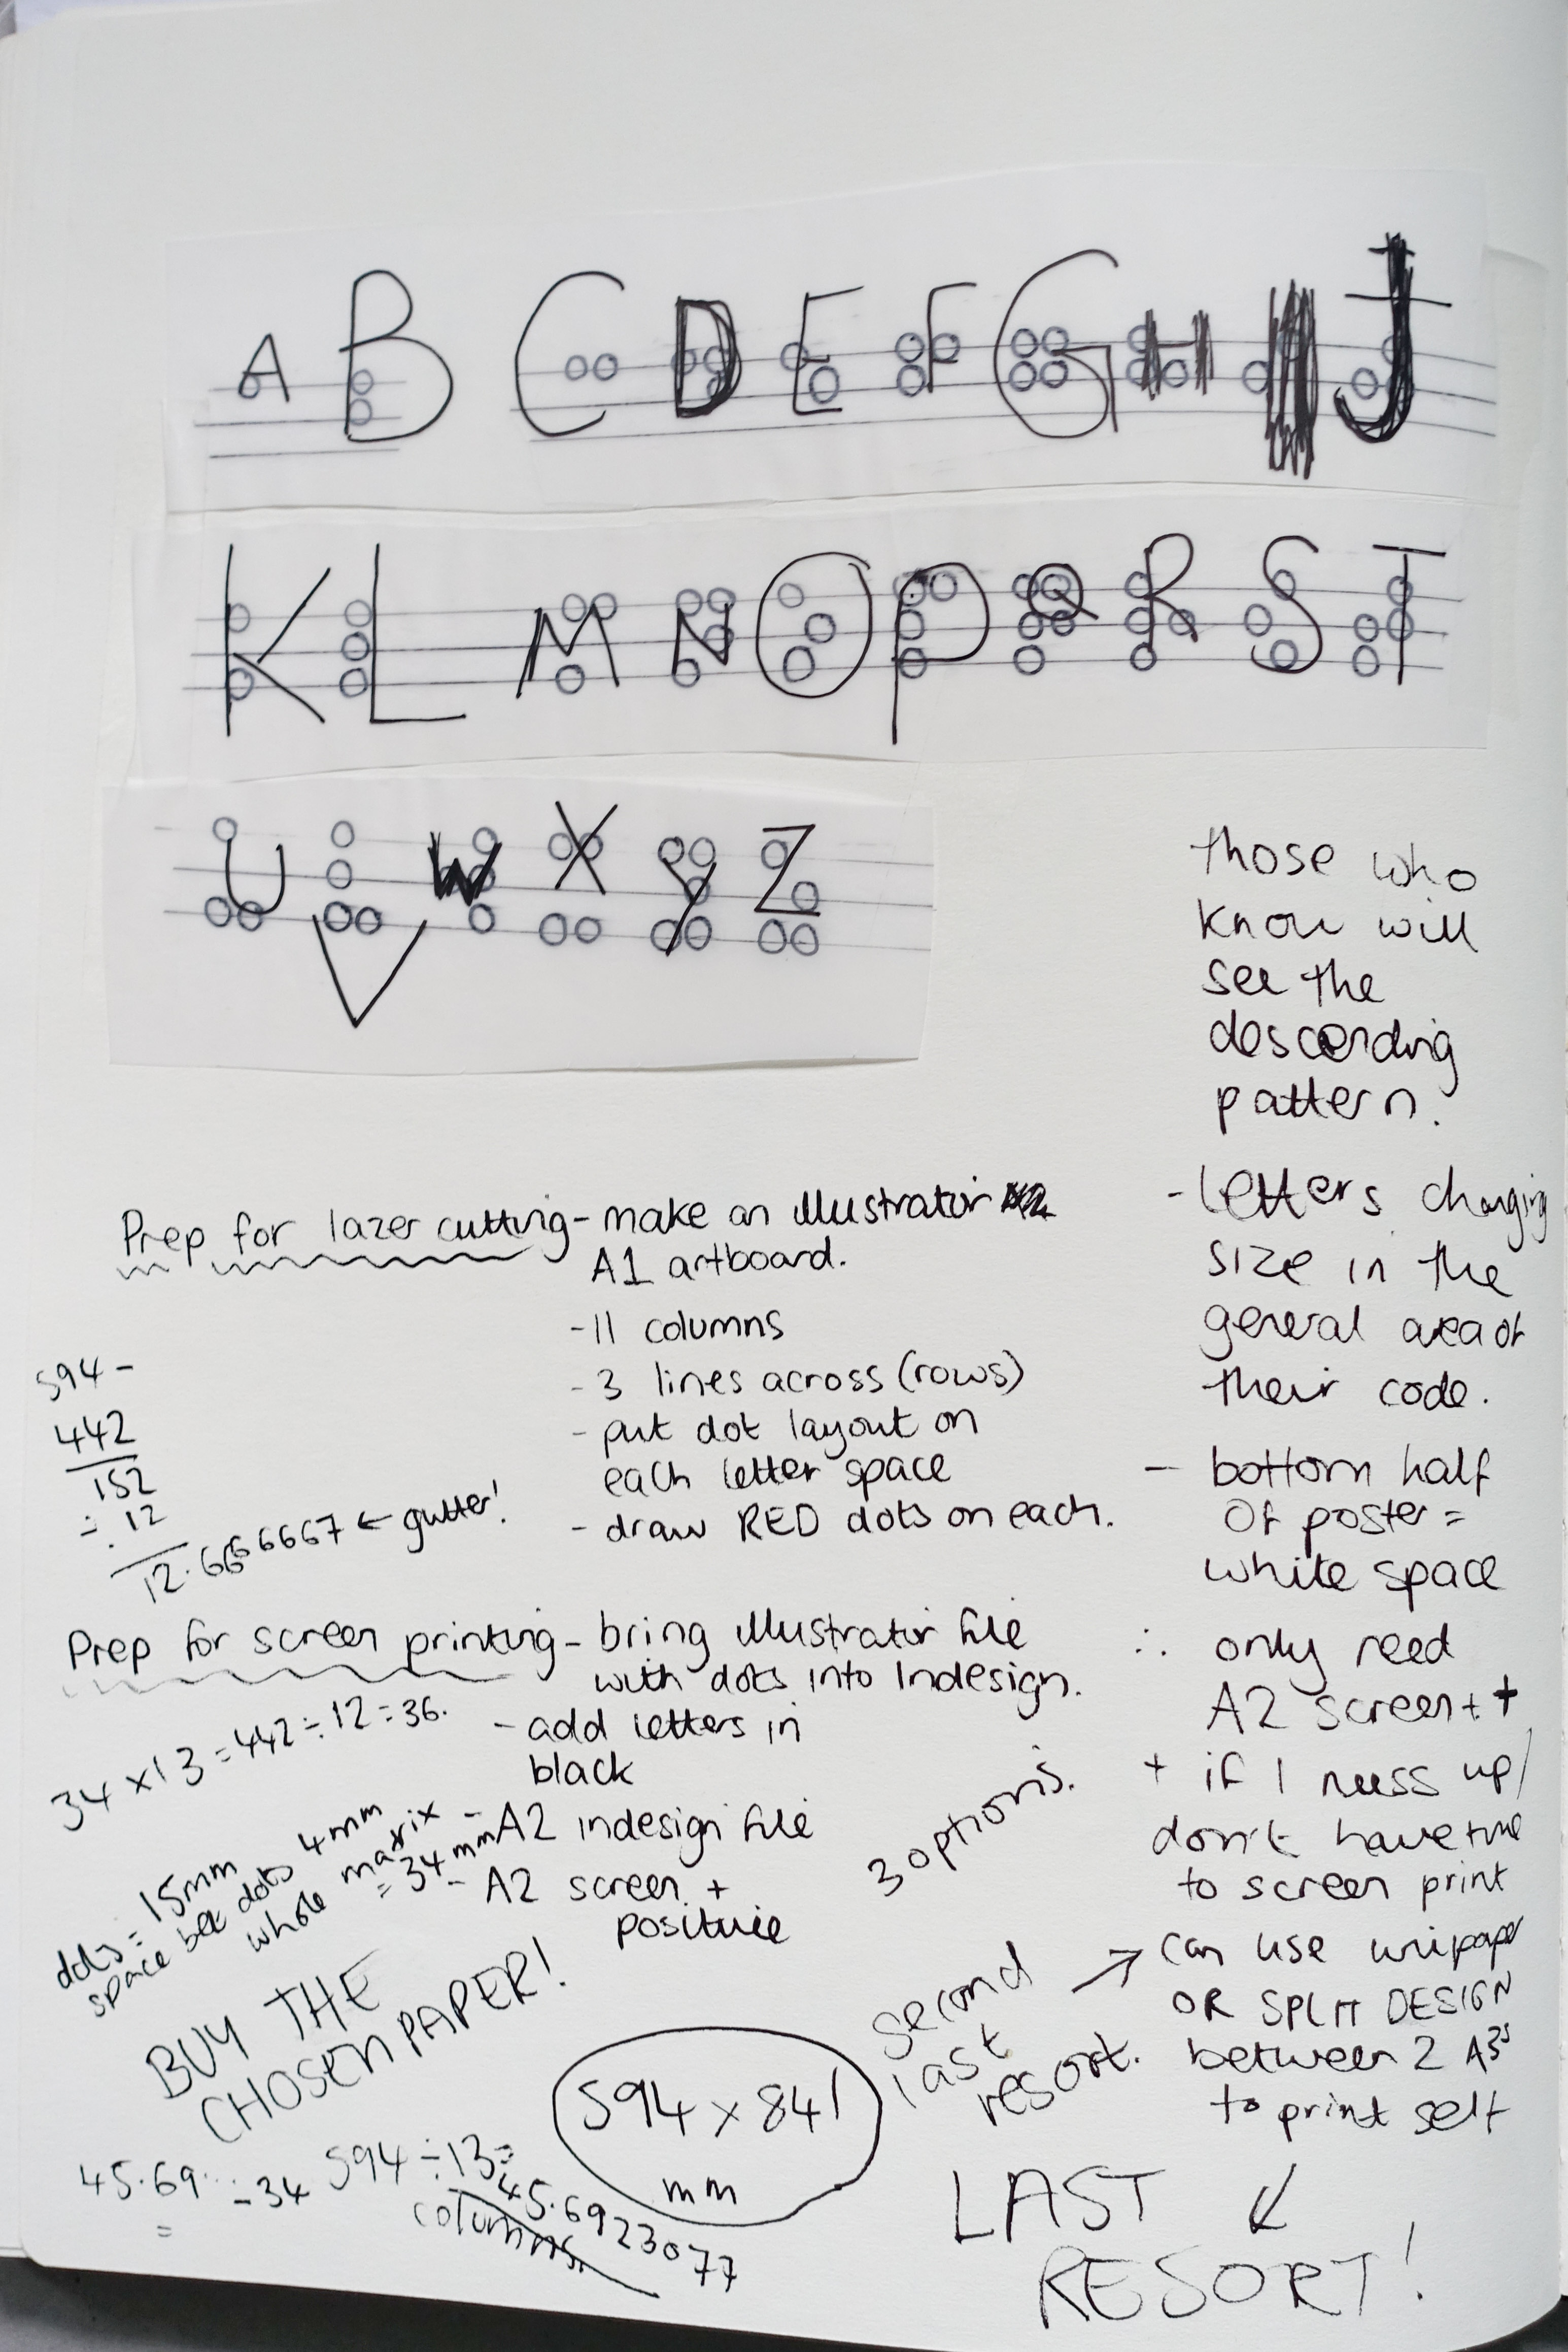 A B C D E F G H I J
K L M N O P Q R S T
U V W X Y Z
those who
know will
see the
descending
pattern.
- letters changing
size in the
general area of
their code.
- bottom half
of poster =
white space
∴ only need
A2 screen ++
+ if I mess up/
don't have time
to screen print
→ can use unipaper
OR SPLIT DESIGN
between 2 A3s
to print self
second
last
resort.
LAST
RESORT!
3 options.
Prep for lazer cutting - make an illustrator
A1 artboard.
- 11 columns
- 3 lines across (rows)
- put dot layout on
each letter space
- draw RED dots on each.
594 -
442
152
÷ 12
12.6666667 ← gutter!
Prep for screen printing - bring illustrator file
with dots into Indesign.
- add letters in
black
- A2 indesign file
- A2 screen +
positive
34 × 13 = 442 ÷ 12 = 36.
dots = 15mm
space bet dots 4mm
whole matrix
= 34mm
BUY THE
CHOSEN PAPER!
594 × 841
mm
594 ÷ 13 =
45.6923077
columns.
45.69.. ÷ 34
=